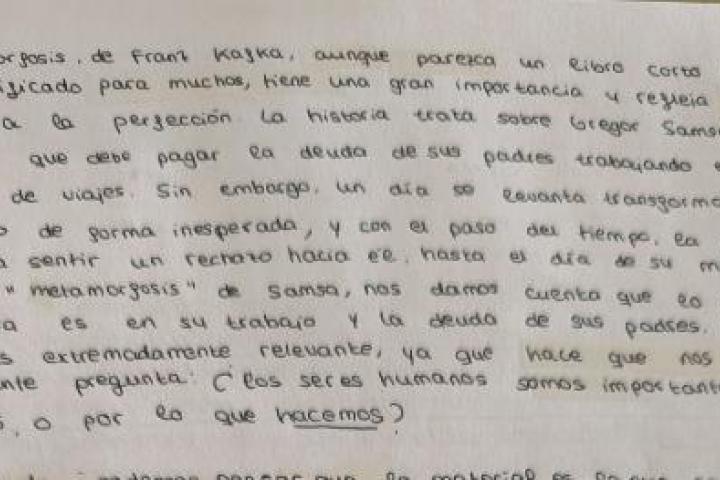 orfosis, de Franz Kafka, aunque parezca un libro corto
ificado para muchos, tiene una gran importancia y refleja
a la perfección. La historia trata sobre Gregor Sams
que debe pagar la deuda de sus padres trabajando
de viajes. Sin embargo, un día se levanta transforma
o de forma inesperada, y con el paso del tiempo, la
a sentir un rechazo hacia él, hasta el día de su m
"metamorfosis" de Samsa, nos damos cuenta que lo
a es en su trabajo y la deuda de sus padres.
s extremadamente relevante, ya que hace que nos
nte pregunta: ¿los seres humanos somos important
s, o por lo que hacemos?